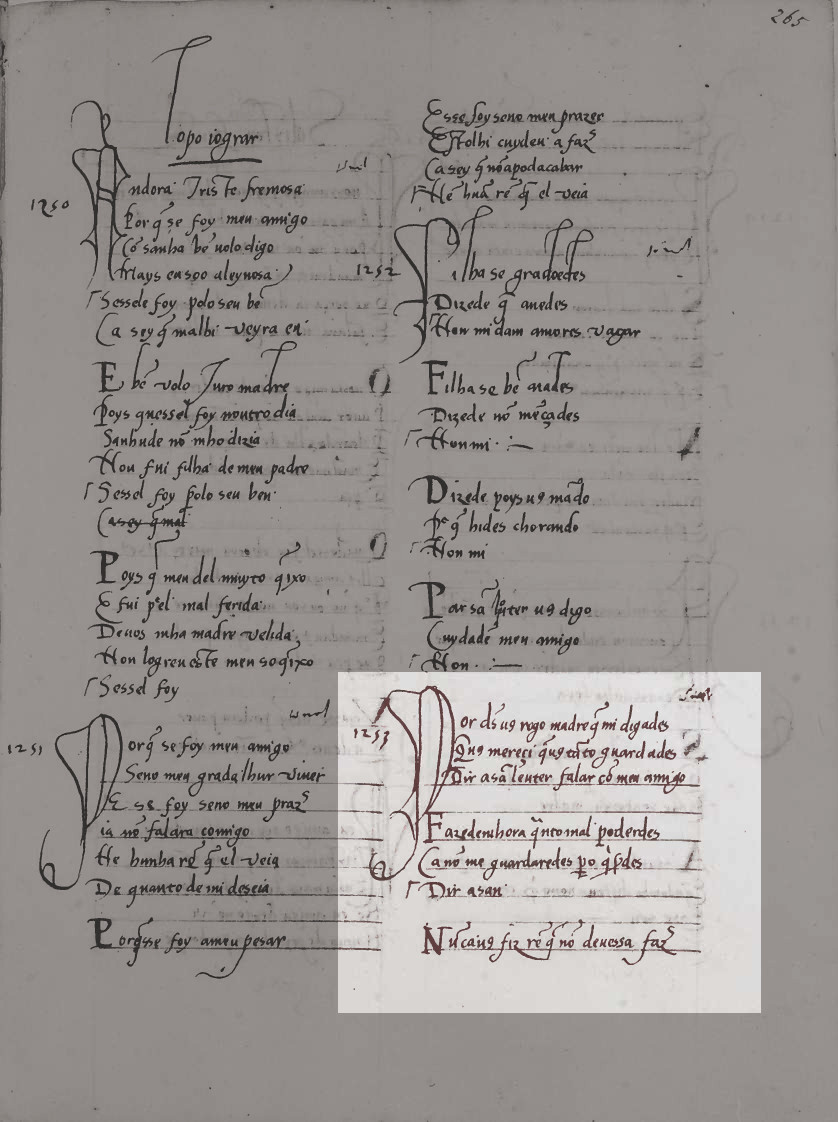 265
Lopo iograr
1250
Andora Triste fremosa
Porq̃ se foy meu amigo
Cõ sanha bẽ uolo digo
Mays en soo aleyuosa
Sessele foy polo seu bẽ
Ca sey q̃ malhi veyra en
E bẽ volo Juro madre
Poys quessel foy noutro dia
Sanhude nõ mho dizia
Nou fui filha de meu padre
Sessel foy polo seu ben
Casey q̃ mal
Poys q̃ meu del muyto q̃ixo
E fui pel mal ferida
De uos mha madre velida
Non logreu este meu soq̃ixo
Sessel foy
1251
Porq̃ se foy meu amigo
Seno meu grad alhur viuer
E se foy seno meu praz
ia nõ falara comigo
Ne hunha rẽ q̃ el veia
De quanto de mi deseia
Porq̃sse foy ameu pesar
Esse foy seno meu prazer
E tolhi cuydeu a faz
Ca sey q̃ nõ apodacabar
Ne huã rẽ q̃ el veia
1252
Filha se gradoedes
Dizede q̃ auedes
Non mi dam amores vagar
Filha se bẽ aiades
Dizede nõ mẽçades
Non mi
Dizede poys uꝯ mãdo
Por q̃ hides chorando
Non mi
Par sã uꝯ digo
Cuydade meu amigo
Non
1253
Por ds uꝯ rogo madre q̃ mi digades
Que mereçi q̃uꝯ tãto guardades
Dir asã leuter falar cõ meu amigo
Fazedemhora q̃nto mal poderdes
Ca nõ me guardaredes
Dir a san
Nũcauꝯ fiz rẽ q̃ nõ deuessa faz